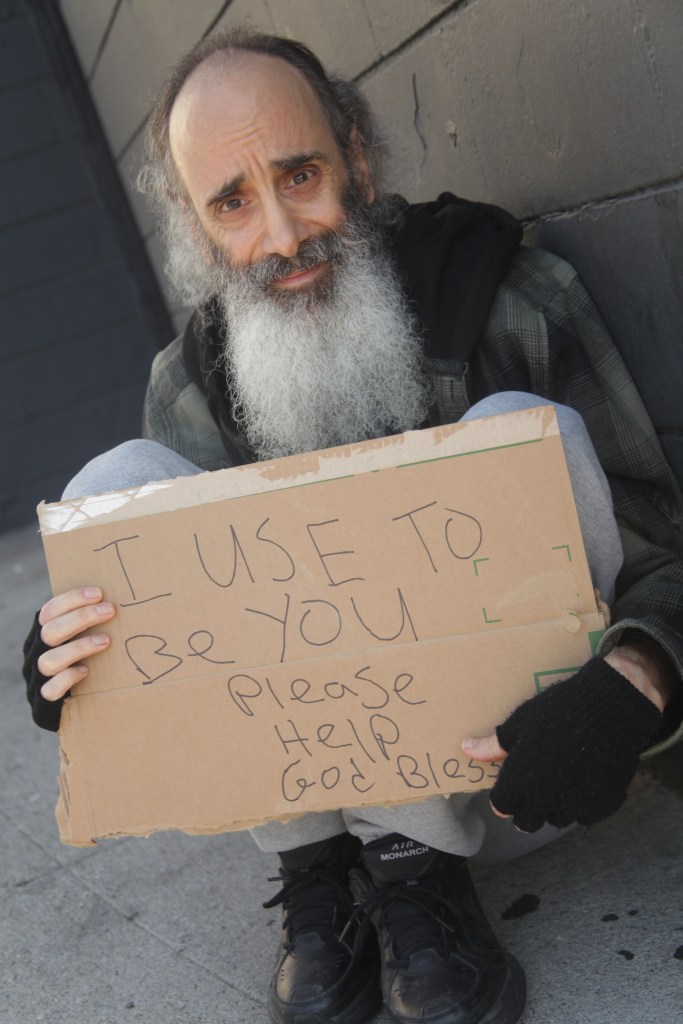 I USE TO
Be YOU
Please
Help
God Bless
AIR
MONARCH